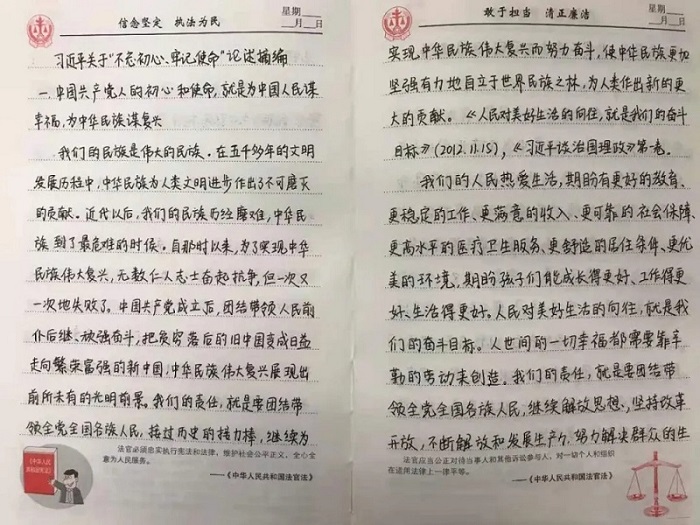 信念坚定 执法为民
星期
月 日
习近平关于“不忘初心、牢记使命”论述摘编
一.中国共产党人的初心和使命,就是为中国人民谋
幸福,为中华民族谋复兴
我们的民族是伟大的民族。在五千多年的文明
发展历程中,中华民族为人类文明进步作出了不可磨灭
的贡献。近代以后,我们的民族历经磨难,中华民
族到了最危难的时候。自那时以来,为了实现中华
民族伟大复兴,无数仁人志士奋起抗争,但一次又
一次地失败了。中国共产党成立后,团结带领人民前
仆后继、顽强奋斗,把贫穷落后的旧中国变成日益
走向繁荣富强的新中国,中华民族伟大复兴展现出
前所未有的光明前景。我们的责任,就是要团结带
领全党全国各族人民,接过历史的接力棒,继续为
法官必须忠实执行宪法和法律,维护社会公平正义,全心全
意为人民服务。
——《中华人民共和国法官法》
敢于担当 清正廉洁
星期
月 日
实现中华民族伟大复兴而努力奋斗,使中华民族更加
坚强有力地自立于世界民族之林,为人类作出新的更
大的贡献。《人民对美好生活的向往,就是我们的奋斗
目标》(2012.11.15),《习近平谈治国理政》第一卷.
我们的人民热爱生活,期盼有更好的教育、
更稳定的工作、更满意的收入、更可靠的社会保障、
更高水平的医疗卫生服务、更舒适的居住条件、更优
美的环境,期盼孩子们能成长得更好、工作得更
好、生活得更好。人民对美好生活的向往,就是我
们的奋斗目标。人世间的一切幸福都需要靠辛
勤的劳动来创造。我们的责任,就是要团结带
领全党全国各族人民,继续解放思想、坚持改革
开放,不断解放和发展生产力,努力解决群众的生
法官应当公正对待当事人和其他诉讼参与人,对一切个人和组织
在适用法律上一律平等。
——《中华人民共和国法官法》